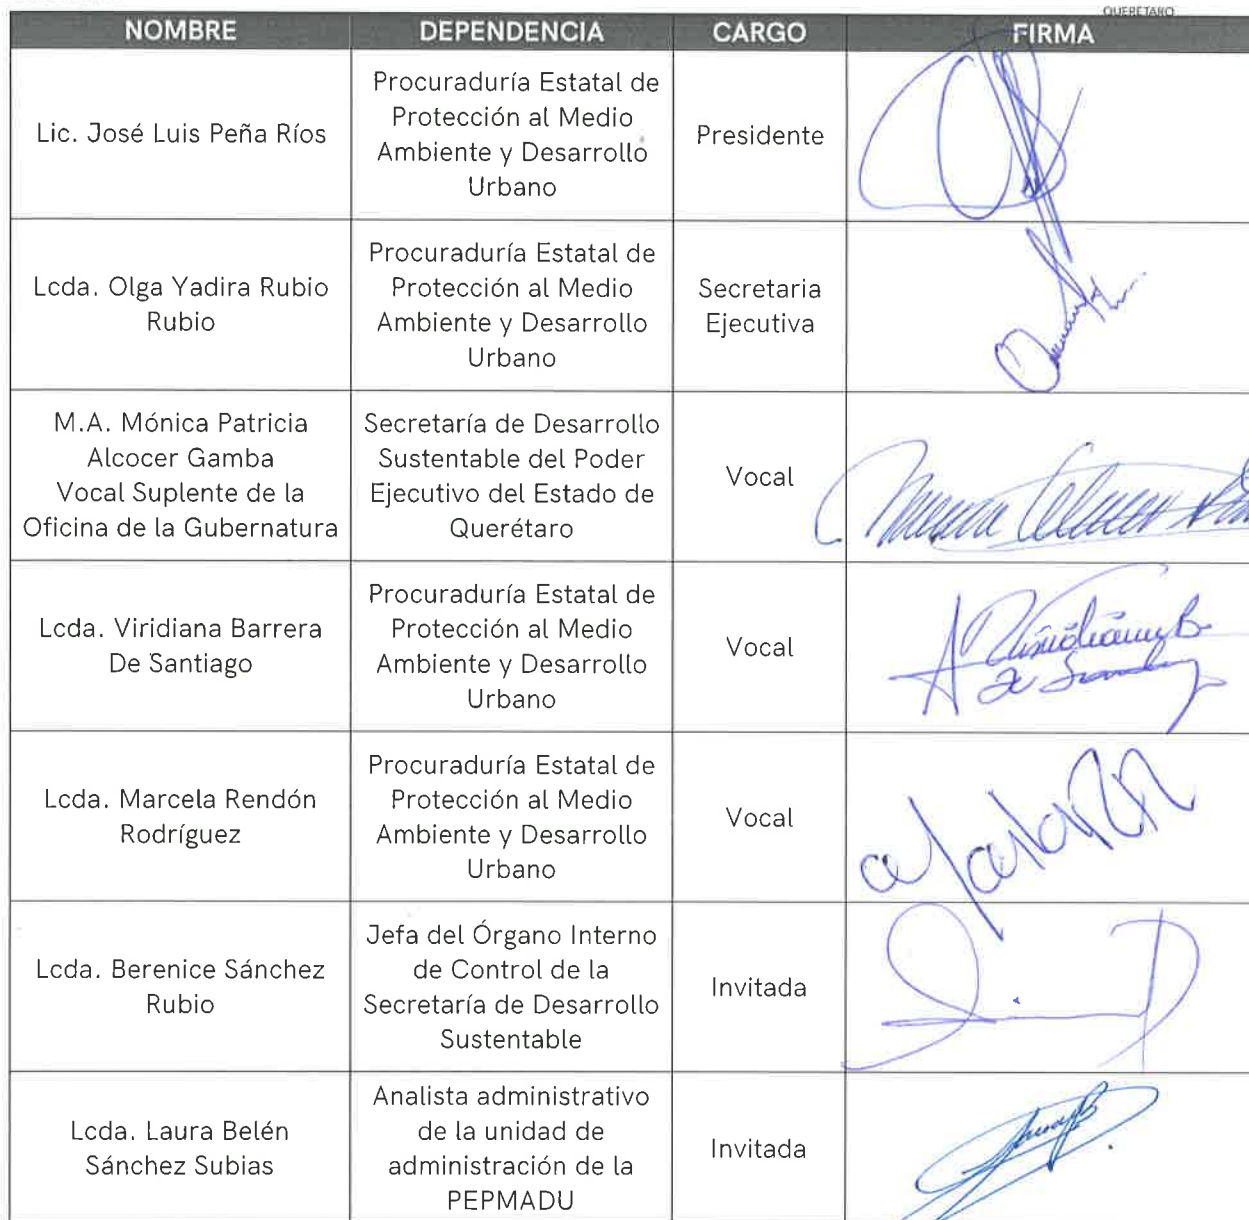 QUERÉTARO
NOMBRE DEPENDENCIA CARGO FIRMA
Lic. José Luis Peña Ríos
Procuraduría Estatal de
Protección al Medio
Ambiente y Desarrollo
Urbano
Presidente
Lcda. Olga Yadira Rubio
Rubio
Procuraduría Estatal de
Protección al Medio
Ambiente y Desarrollo
Urbano
Secretaria
Ejecutiva
M.A. Mónica Patricia
Alcocer Gamba
Vocal Suplente de la
Oficina de la Gubernatura
Secretaría de Desarrollo
Sustentable del Poder
Ejecutivo del Estado de
Querétaro
Vocal
Lcda. Viridiana Barrera
De Santiago
Procuraduría Estatal de
Protección al Medio
Ambiente y Desarrollo
Urbano
Vocal
Lcda. Marcela Rendón
Rodríguez
Procuraduría Estatal de
Protección al Medio
Ambiente y Desarrollo
Urbano
Vocal
Lcda. Berenice Sánchez
Rubio
Jefa del Órgano Interno
de Control de la
Secretaría de Desarrollo
Sustentable
Invitada
Lcda. Laura Belén
Sánchez Subias
Analista administrativo
de la unidad de
administración de la
PEPMADU
Invitada